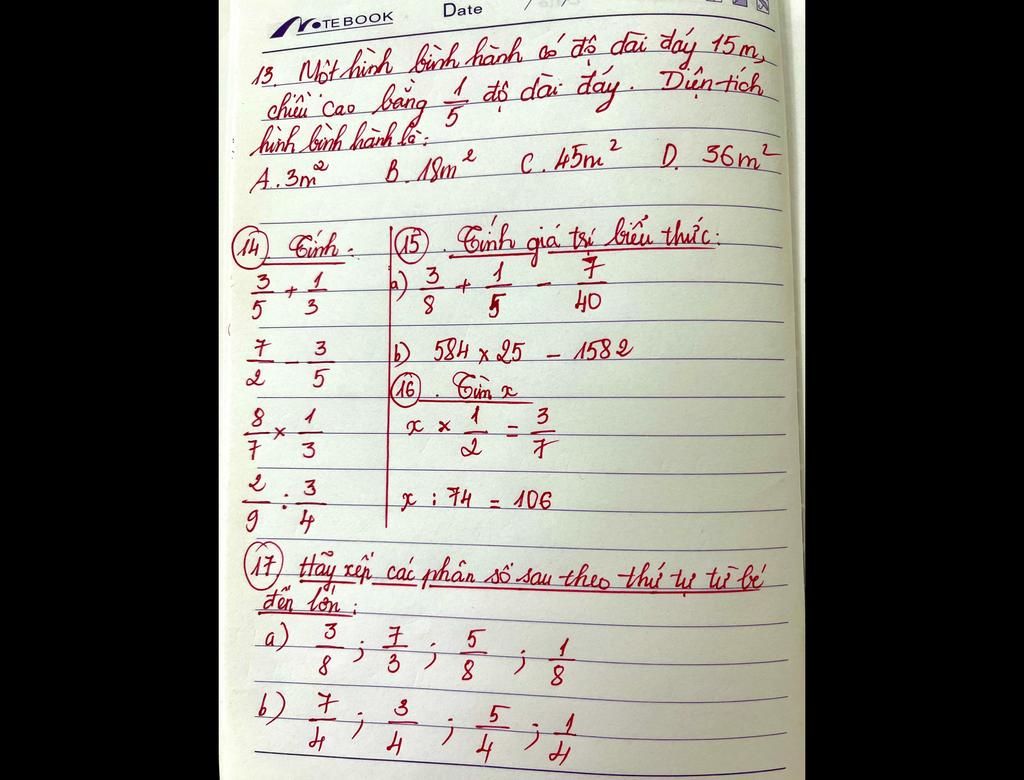 NOTEBOOK Date / /
13. Một hình bình hành có độ dài đáy 15m,
chiều cao bằng 1/5 độ dài đáy. Diện tích
hình bình hành là:
A. 3m² B. 18m² C. 45m² D. 36m²
14 Tính:
3/5 + 1/3
7/2 - 3/5
8/7 × 1/3
2/9 : 3/4
15. Tính giá trị biểu thức:
a) 3/8 + 1/5 - 7/40
b) 584 × 25 - 1582
16. Tìm x
x × 1/2 = 3/7
x : 74 = 106
17 Hãy xếp các phân số sau theo thứ tự từ bé
đến lớn:
a) 3/8 ; 7/3 ; 5/8 ; 1/8
b) 7/4 ; 3/4 ; 5/4 ; 1/4